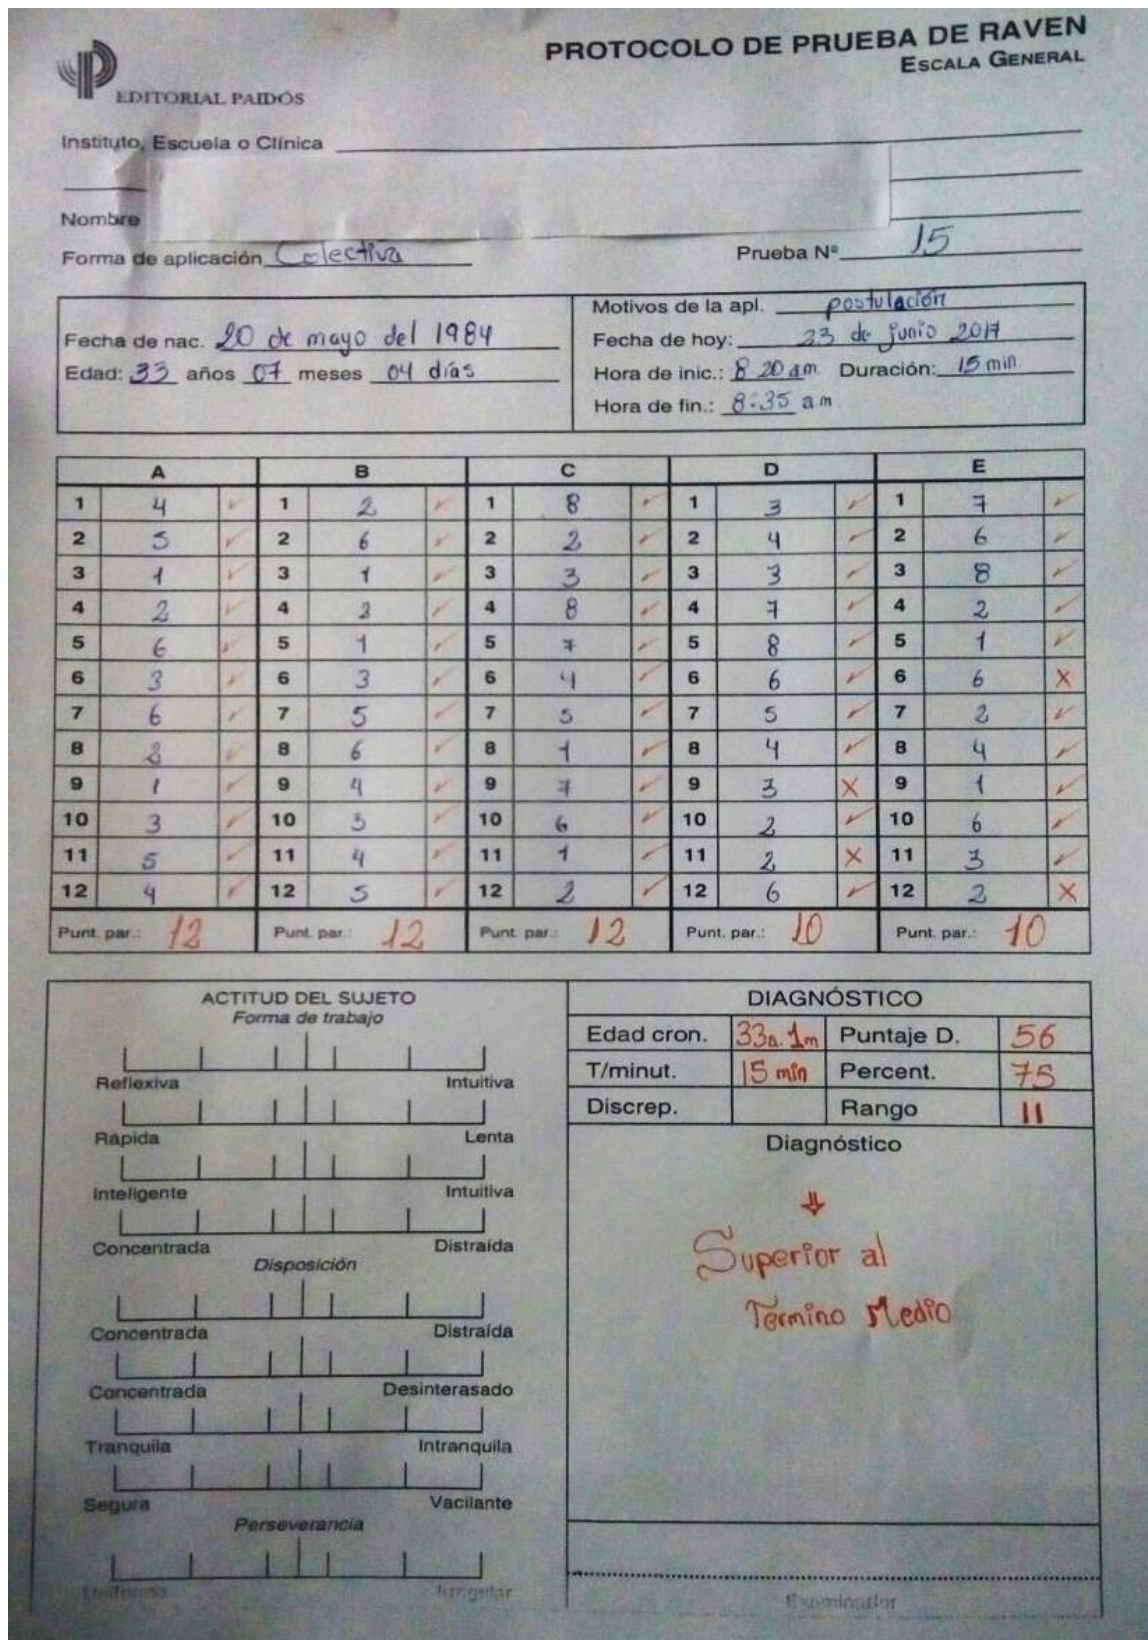 PROTOCOLO DE PRUEBA DE RAVEN
ESCALA GENERAL
EDITORIAL PAIDÓS
Instituto, Escuela o Clínica
Nombre
Forma de aplicación Colectiva Prueba Nº 15
Motivos de la apl. postulación
Fecha de nac. 20 de mayo del 1984 Fecha de hoy: 23 de junio 2017
Edad: 33 años 07 meses 04 días Hora de inic.: 8:20 am Duración: 15 min
Hora de fin.: 8:35 am
A B C D E
1 4 ✓ 1 2 ✓ 1 8 ✓ 1 3 ✓ 1 7 ✓
2 5 ✓ 2 6 ✓ 2 2 ✓ 2 4 ✓ 2 6 ✓
3 1 ✓ 3 1 ✓ 3 3 ✓ 3 3 ✓ 3 8 ✓
4 2 ✓ 4 2 ✓ 4 8 ✓ 4 7 ✓ 4 2 ✓
5 6 ✓ 5 1 ✓ 5 7 ✓ 5 8 ✓ 5 1 ✓
6 3 ✓ 6 3 ✓ 6 4 ✓ 6 6 ✓ 6 6 X
7 6 ✓ 7 5 ✓ 7 5 ✓ 7 5 ✓ 7 2 ✓
8 2 ✓ 8 6 ✓ 8 1 ✓ 8 4 ✓ 8 4 ✓
9 1 ✓ 9 4 ✓ 9 7 ✓ 9 3 X 9 1 ✓
10 3 ✓ 10 3 ✓ 10 6 ✓ 10 2 ✓ 10 6 ✓
11 5 ✓ 11 4 ✓ 11 1 ✓ 11 2 X 11 3 ✓
12 4 ✓ 12 5 ✓ 12 2 ✓ 12 6 ✓ 12 2 X
Punt. par.: 12 Punt. par.: 12 Punt. par.: 12 Punt. par.: 10 Punt. par.: 10
ACTITUD DEL SUJETO
Forma de trabajo
Reflexiva Intuitiva
Rápida Lenta
Inteligente Intuitiva
Concentrada Distraída
Disposición
Concentrada Distraída
Concentrada Desinterasado
Tranquila Intranquila
Segura Vacilante
Perseverancia
Uniforme Irregular
DIAGNÓSTICO
Edad cron. 33a. 1m Puntaje D. 56
T/minut. 15 min Percent. 75
Discrep. Rango II
Diagnóstico
Superior al
Término Medio
Examinador